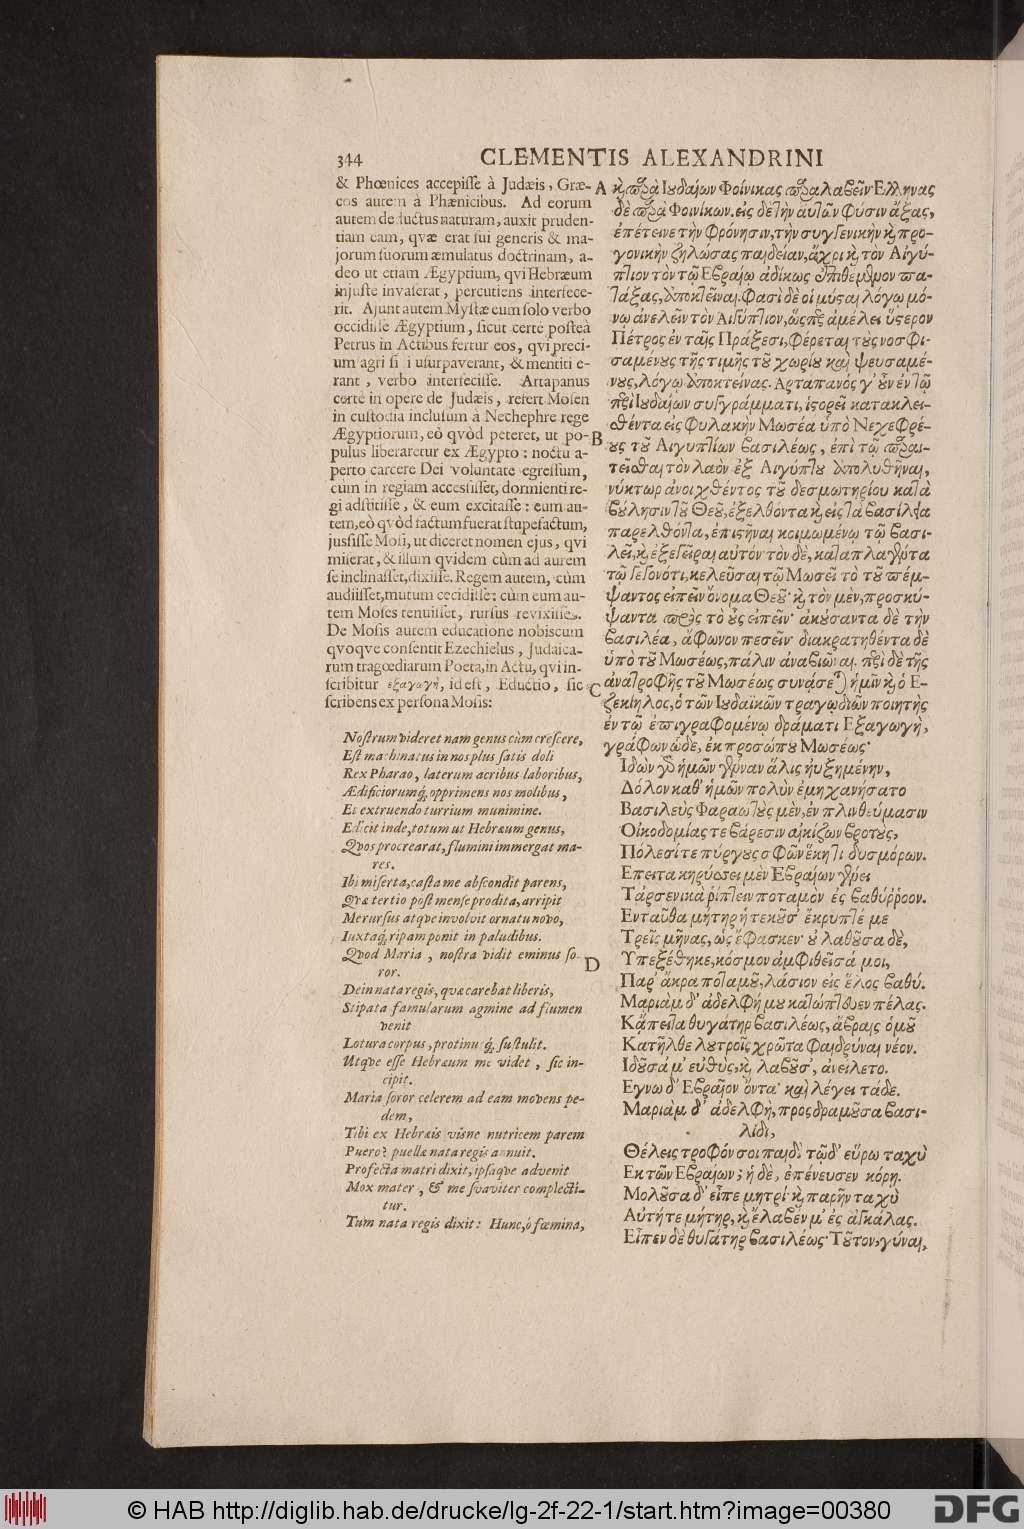 344
CLEMENTIS ALEXANDRINI
& Phœnices accepisse à Judæis, Græ-
cos autem à Phænicibus. Ad eorum
autem deductus naturam, auxit pruden-
tiam eam, qvæ erat sui generis & ma-
jorum suorum æmulatus doctrinam, a-
deo ut etiam Ægyptium, qvi Hebræum
injuste invaserat, percutiens interfece-
rit. Ajunt autem Mystæ eum solo verbo
occidisse Ægyptium, sicut certè posteà
Petrus in Actibus fertur eos, qvi preci-
um agri sibi usurpaverant, & mentiti e-
rant, verbo interfecisse. Artapanus
certè in opere de Judæis, refert Mosen
in custodia inclusum à Nechephre rege
Ægyptiorum, eò qvòd peteret, ut po-
pulus liberaretur ex Ægypto: noctu a-
perto carcere Dei voluntate egressum,
cùm in regiam accessisset, dormienti re-
gi adstitisse, & eum excitasse: eum au-
tem, eò qvòd factum fuerat stupefactum,
jussisse Mosi, ut diceret nomen ejus, qvi
miserat, & illum qvidem cùm ad aurem
se inclinasset, dixisse. Regem autem, cùm
audiisset, mutum cecidisse: cùm eum au-
tem Moses tenuisset, rursus revixisse.
De Mosis autem educatione nobiscum
qvoqve consentit Ezechielus, Judaica-
rum tragœdiarum Poeta, in Actu, qvi in-
scribitur ἐξαγωγὴ, id est, Eductio, sic
scribens ex persona Mosis:
Nostrum videret nam genus cùm crescere,
Est machinatus in nos plus satis doli
Rex Pharao, laterum acribus laboribus,
Ædificiorumq́; opprimens nos molibus,
Et extruendo turrium munimine.
Edicit inde, totum ut Hebræum genus,
Qvos procrearat, flumini immergat ma-
res.
Ibi miserta, casta me abscondit parens,
Qvæ tertio pòst mense prodita, arripit
Me rursus atqve involvit ornatu novo,
Iuxtaq́; ripam ponit in paludibus.
Qvod Maria, nostra vidit eminus so-
ror.
Dein nata regis, qvæ carebat liberis,
Stipata famularum agmine ad flumen
venit
Lotura corpus, protinusq́; sustulit.
Utqve esse Hebræum me videt, sic in-
cipit.
Maria soror celerem ad eam movens pe-
dem,
Tibi ex Hebræis visne nutricem parem
Puero? puellæ nata regis annuit.
Profecta matri dixit, ipsaqve advenit
Mox mater, & me svaviter complecti-
tur.
Tum nata regis dixit: Hunc, ó fœmina,
A
B
C
D
καὶ παρὰ Ἰουδαίων Φοίνικας παραλαβεῖν· Ἕλληνας
δὲ παρὰ Φοινίκων. εἰς δὲ τὴν αὐτῶν φύσιν ἄξας,
ἐπέτεινε τὴν φρόνησιν, τὴν συγγενικὴν καὶ προ-
γονικὴν ζηλώσας παιδείαν, ἄχρι καὶ τὸν Αἰγύ-
πτιον τὸν τῷ Ἑβραίῳ ἀδίκως ἐπιθέμενον πα-
τάξας, ἀποκτεῖναι. Φασὶ δὲ οἱ μύσται λόγῳ μό-
νῳ ἀνελεῖν τὸν Αἰγύπτιον, ὥσπερ ἀμέλει ὕστερον
Πέτρος ἐν ταῖς Πράξεσι, φέρεται τοὺς νοσφι-
σαμένους τῆς τιμῆς τοῦ χωρίου καὶ ψευσαμέ-
νους, λόγῳ ἀποκτείνας. Ἀρταπανὸς γ' οὖν ἐν τῷ
περὶ Ἰουδαίων συγγράμματι, ἱστορεῖ κατακλει-
σθέντα εἰς φυλακὴν Μωσέα ὑπὸ Νεχεφρέ-
ους τοῦ Αἰγυπτίων βασιλέως, ἐπὶ τῷ παραι-
τεῖσθαι τὸν λαὸν ἐξ Αἰγύπτου ἀπολυθῆναι,
νύκτωρ ἀνοιχθέντος τοῦ δεσμωτηρίου κατὰ
βούλησιν τοῦ Θεοῦ, ἐξελθόντα καὶ εἰς τὰ βασίλεια
παρελθόντα, ἐπιστῆναι κοιμωμένῳ τῷ βασι-
λεῖ, καὶ ἐξεγεῖραι αὐτόν· τὸν δὲ, καταπλαγέντα
τῷ γεγονότι, κελεῦσαι τῷ Μωσεῖ τὸ τοῦ πέμ-
ψαντος εἰπεῖν ὄνομα Θεοῦ· καὶ τὸν μὲν, προσκύ-
ψαντα πρὸς τὸ οὖς εἰπεῖν· ἀκούσαντα δὲ τὴν
βασιλέα, ἄφωνον πεσεῖν· διακρατηθέντα δὲ
ὑπὸ τοῦ Μωσέως, πάλιν ἀναβιῶναι. περὶ δὲ τῆς
ἀνατροφῆς τοῦ Μωσέως συνᾴσεται ἡμῖν καὶ ὁ Ἐ-
ζεκίηλος, ὁ τῶν Ἰουδαϊκῶν τραγῳδιῶν ποιητὴς
ἐν τῷ ἐπιγραφομένῳ δράματι Ἐξαγωγὴ,
γράφων ὧδε, ἐκ προσώπου Μωσέως·
Ἰδὼν γὰρ ἡμῶν γένναν ἅλις ηὐξημένην,
Δόλον καθ' ἡμῶν πολὺν ἐμηχανήσατο
Βασιλεὺς Φαραώ· τοὺς μὲν, ἐν πλινθεύμασιν
Οἰκοδομίας τε βάρεσιν αἰκίζων βροτοὺς,
Πόλεσί τε πύργους σφῶν ἕκητι δυσμόρων.
Ἔπειτα κηρύσσει μὲν Ἑβραίων γένει
Τἀρσενικὰ ῥίπτειν ποταμὸν ἐς βαθύῤῥοον.
Ἐνταῦθα μήτηρ ἡ τεκοῦσ' ἔκρυπτέ με
Τρεῖς μῆνας, ὡς ἔφασκεν· οὐ λαθοῦσα δὲ,
Ὑπεξέθηκε, κόσμον ἀμφιθεῖσά μοι,
Παρ' ἄκρα ποταμοῦ, λάσιον εἰς ἕλος βαθύ.
Μαριὰμ δ' ἀδελφή μου κατώπτευεν πέλας.
Κἄπειτα θυγάτηρ βασιλέως, ἄβραις ὁμοῦ
Κατῆλθε λουτροῖς χρῶτα φαιδρύναι νέον.
Ἰδοῦσά μ' εὐθὺς, καὶ λαβοῦσ', ἀνείλετο.
Ἔγνω δ' Ἑβραῖον ὄντα· καὶ λέγει τάδε.
Μαριὰμ δ' ἀδελφὴ, προσδραμοῦσα βασι-
λίδι,
Θέλεις τροφόν σοι παιδὶ τῷδ' εὕρω ταχὺ
Ἐκ τῶν Ἑβραίων; ἡ δὲ, ἐπένευσεν κόρη.
Μολοῦσα δ' εἶπε μητρί· καὶ παρῆν ταχὺ
Αὐτή τε μήτηρ, καὶ ἔλαβέν μ' ἐς ἀγκάλας.
Εἶπεν δὲ θυγάτηρ βασιλέως· Τοῦτον, γύναι,
© HAB http://diglib.hab.de/drucke/lg-2f-22-1/start.htm?image=00380
DFG